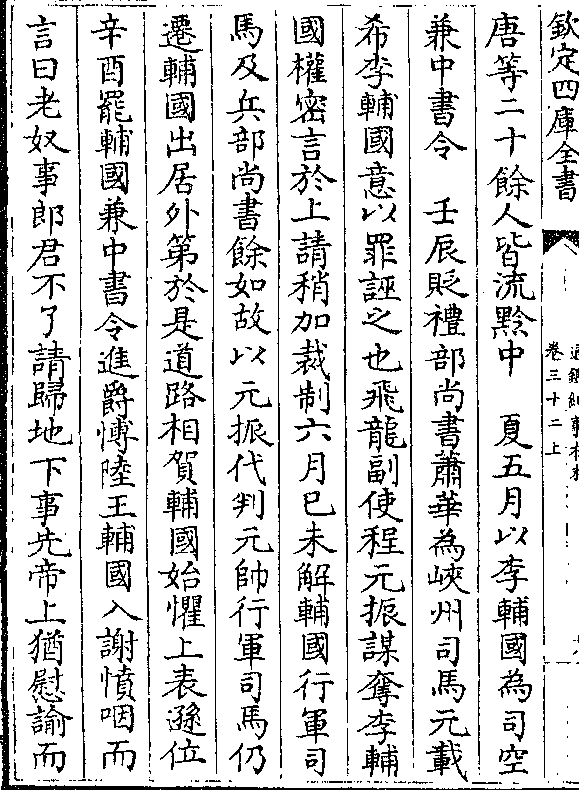 欽定四庫全書
卷三十二上
唐等二十餘人皆流黔中　夏五月以李輔國為司空
兼中書令　壬辰貶禮部尚書蕭華為峽州司馬元載
希李輔國意以罪誣之也飛龍副使程元振謀奪李輔
國權密言於上請稍加裁制六月已未解輔國行軍司
馬及兵部尚書餘如故以元振代判元帥行軍司馬仍
遷輔國出居外第於是道路相賀輔國始懼上表遜位
辛酉罷輔國兼中書令進爵博陸王輔國入謝憤咽而
言曰老奴事郎君不了請歸地下事先帝上猶慰諭而